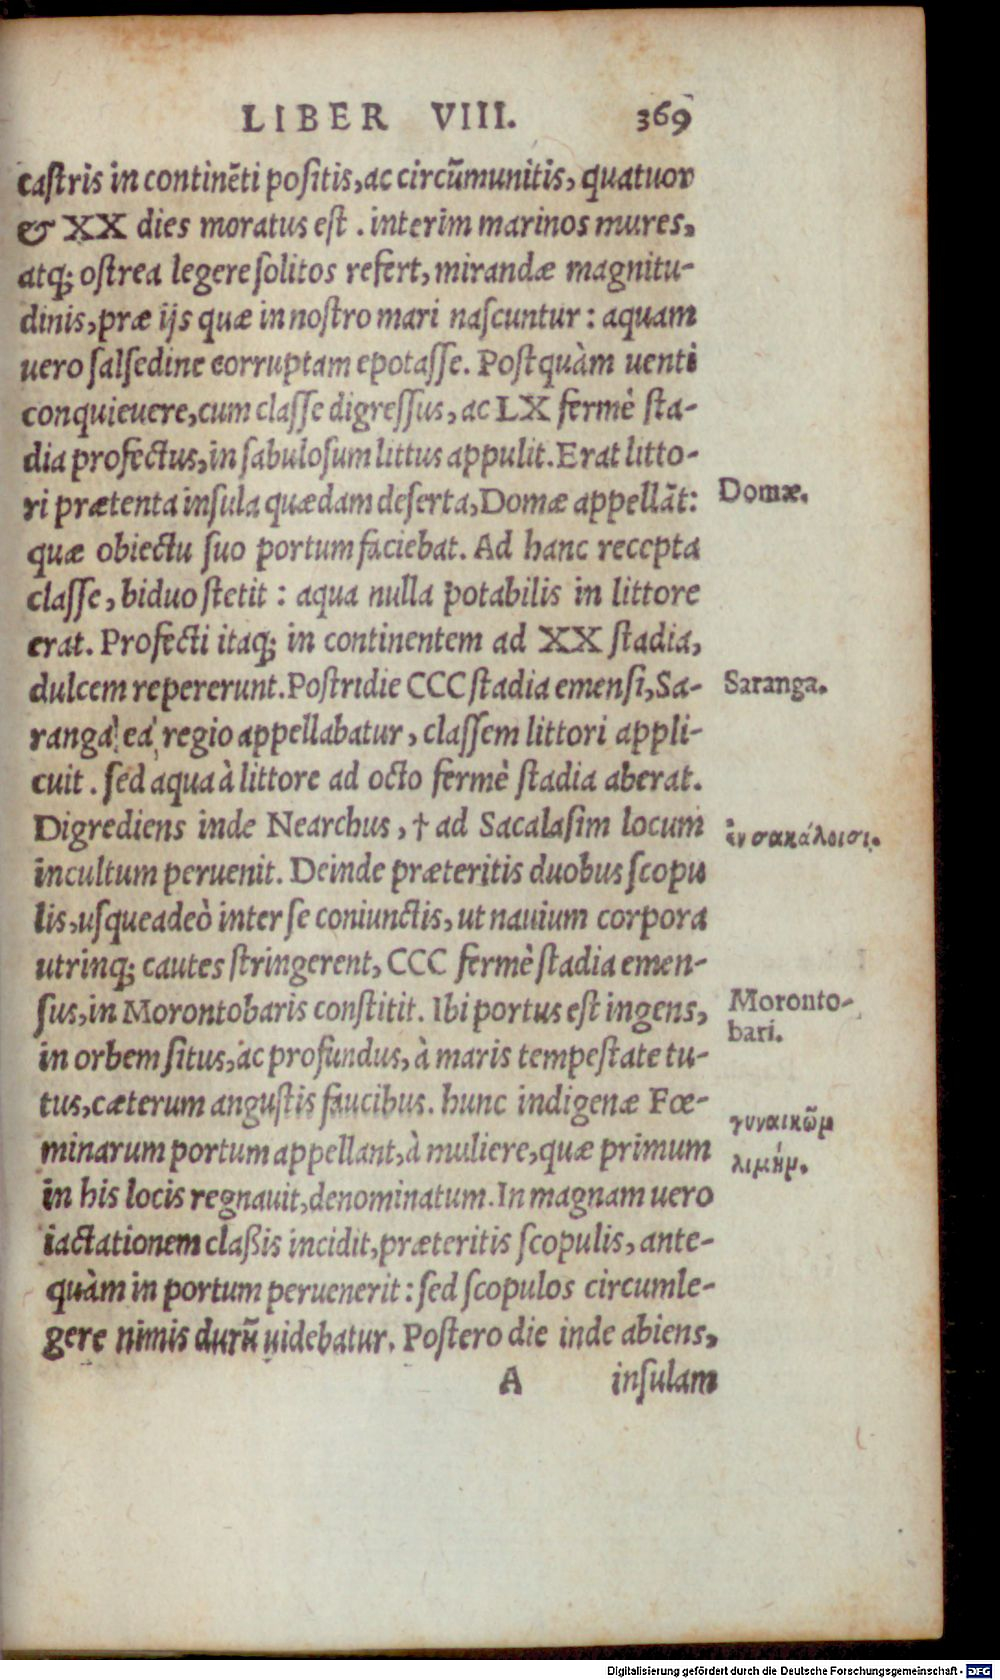 LIBER VIII. 369
castris in continẽti positis, ac circũmunitis, quatuor
& XX dies moratus est . interim marinos mures,
atq; ostrea legere solitos refert, mirandæ magnitu-
dinis, præ ijs quæ in nostro mari nascuntur : aquam
uero salsedine corruptam epotasse. Postquàm uenti
conquieuere, cum classe digressus, ac LX fermè sta-
dia profectus, in sabulosum littus appulit. Erat litto-
ri prætenta insula quædam deserta, Domæ appellãt:
Domæ.
quæ obiectu suo portum faciebat. Ad hanc recepta
classe, biduo stetit : aqua nulla potabilis in littore
erat. Profecti itaq; in continentem ad XX stadia,
dulcem repererunt. Postridie CCC stadia emensi, Sa-
Saranga.
ranga ea regio appellabatur, classem littori appli-
cuit . sed aqua à littore ad octo fermè stadia aberat.
Digrediens inde Nearchus, † ad Sacalasim locum
ἐν σακάλοισι.
incultum peruenit. Deinde præteritis duobus scopu
lis, usqueadeò inter se coniunctis, ut nauium corpora
utrinq; cautes stringerent, CCC fermè stadia emen-
sus, in Morontobaris constitit. Ibi portus est ingens,
Moronto-
bari.
in orbem situs, ac profundus, à maris tempestate tu-
tus, cæterum angustis faucibus. hunc indigenæ Fœ-
γυναικῶμ
minarum portum appellant, à muliere, quæ primum
λιμήμ.
in his locis regnauit, denominatum. In magnam uero
iactationem claßis incidit, præteritis scopulis, ante-
quàm in portum peruenerit : sed scopulos circumle-
gere nimis durũ uidebatur. Postero die inde abiens,
A insulam
Digitalisierung gefördert durch die Deutsche Forschungsgemeinschaft - DFG